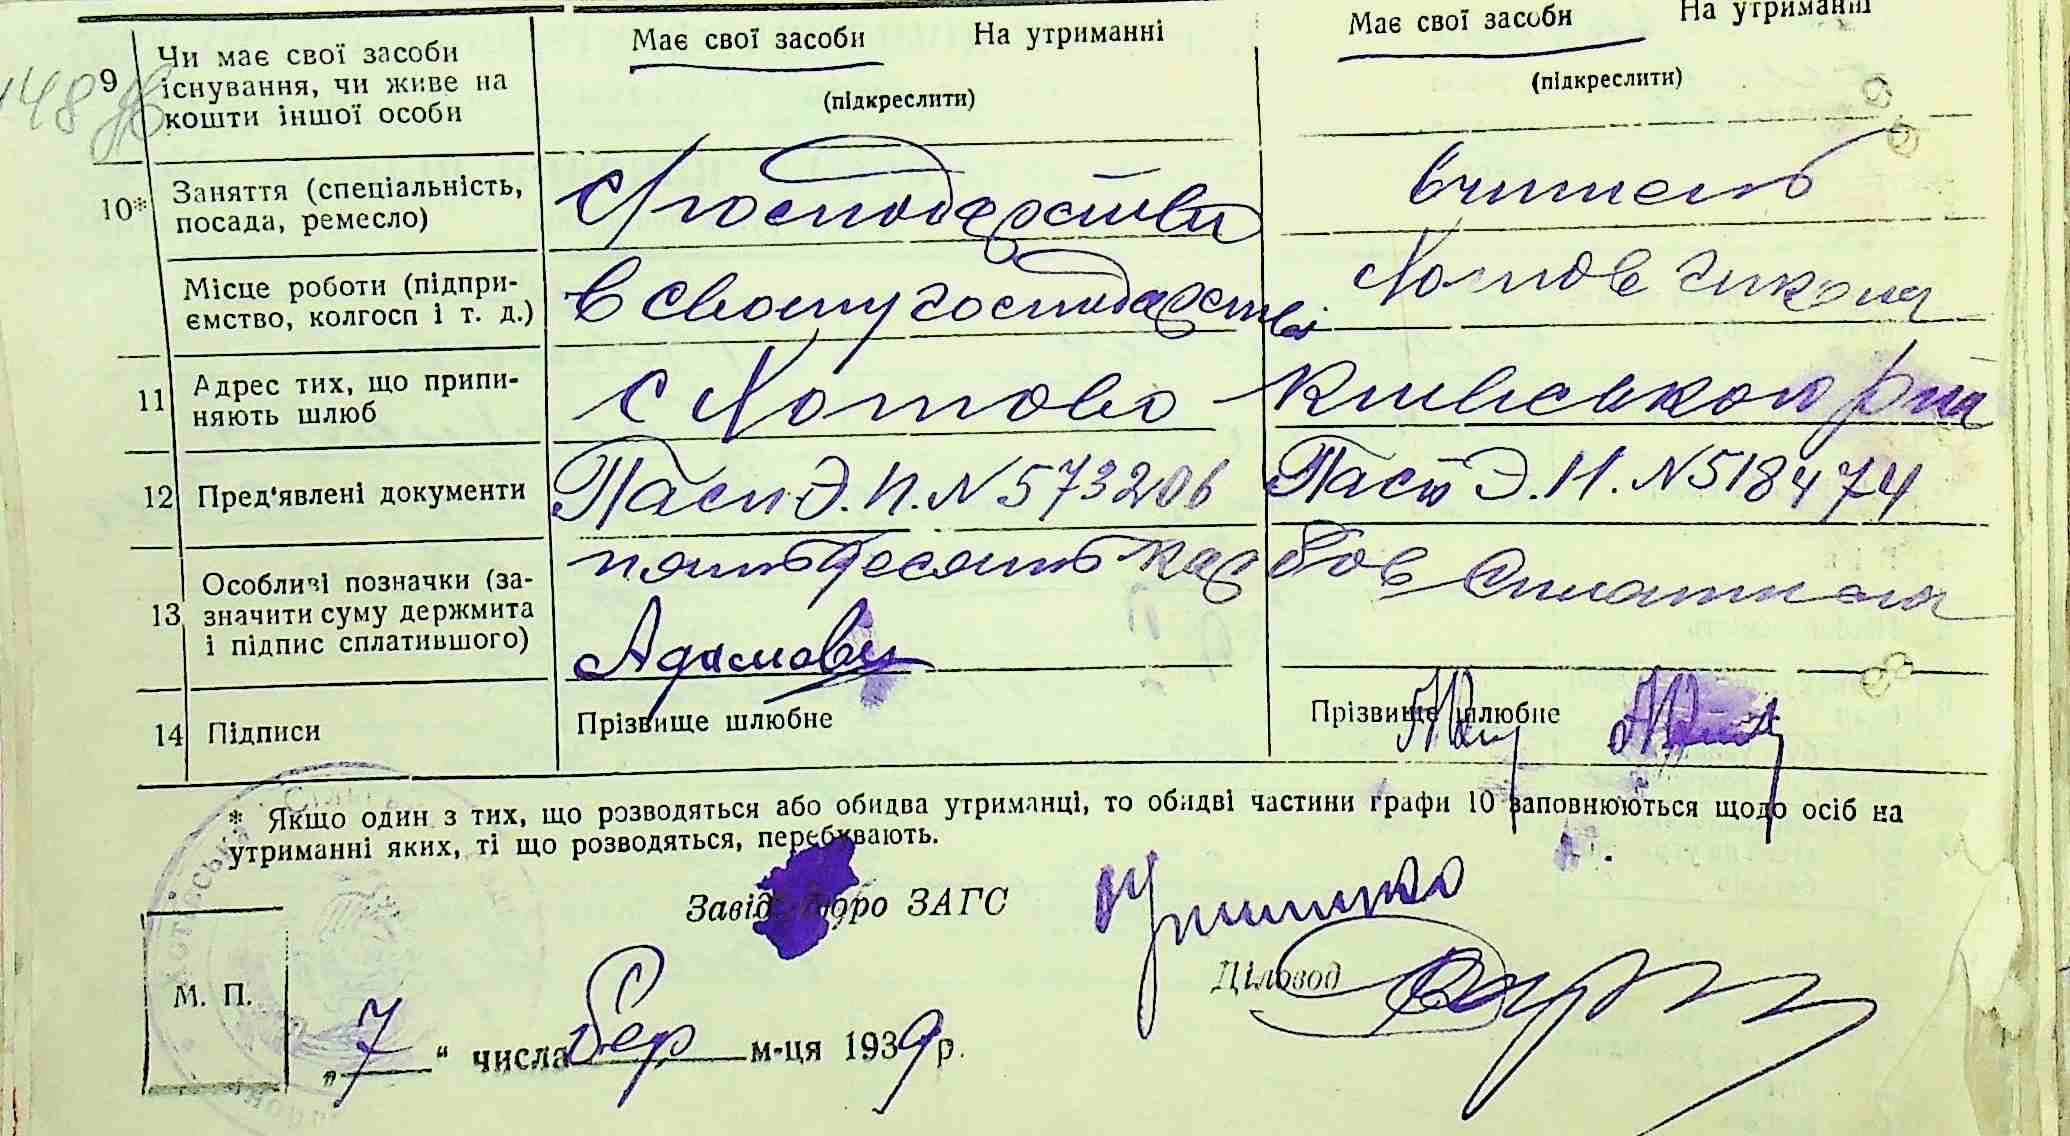 Має свої засоби На утриманні Має свої засоби На утриманні
9 Чи має свої засоби існування, чи живе на кошти іншої особи
(підкреслити) (підкреслити)
148
10* Заняття (спеціальність, посада, ремесло)
господарства вчитель
Місце роботи (підприємство, колгосп і т. д.)
в своєму господарстві Хотов школа
11 Адрес тих, що припиняють шлюб
с Хотово Київського р-на
12 Пред'явлені документи
Пасп Э.П. N 573206 Пасп Э.И. N 518474
13 Особливі позначки (зазначити суму держмита і підпис сплатившого)
пятьдесять кар бов Сплатила
14 Підписи
Прізвище шлюбне Прізвище шлюбне
* Якщо один з тих, що розводяться або обидва утриманці, то обидві частини графи 10 заповнюються щодо осіб на
утриманні яких, ті що розводяться, перебувають.
Завід. бюро ЗАГС
Діловод
М. П.
„7“ числа бер м-ця 1939 р.